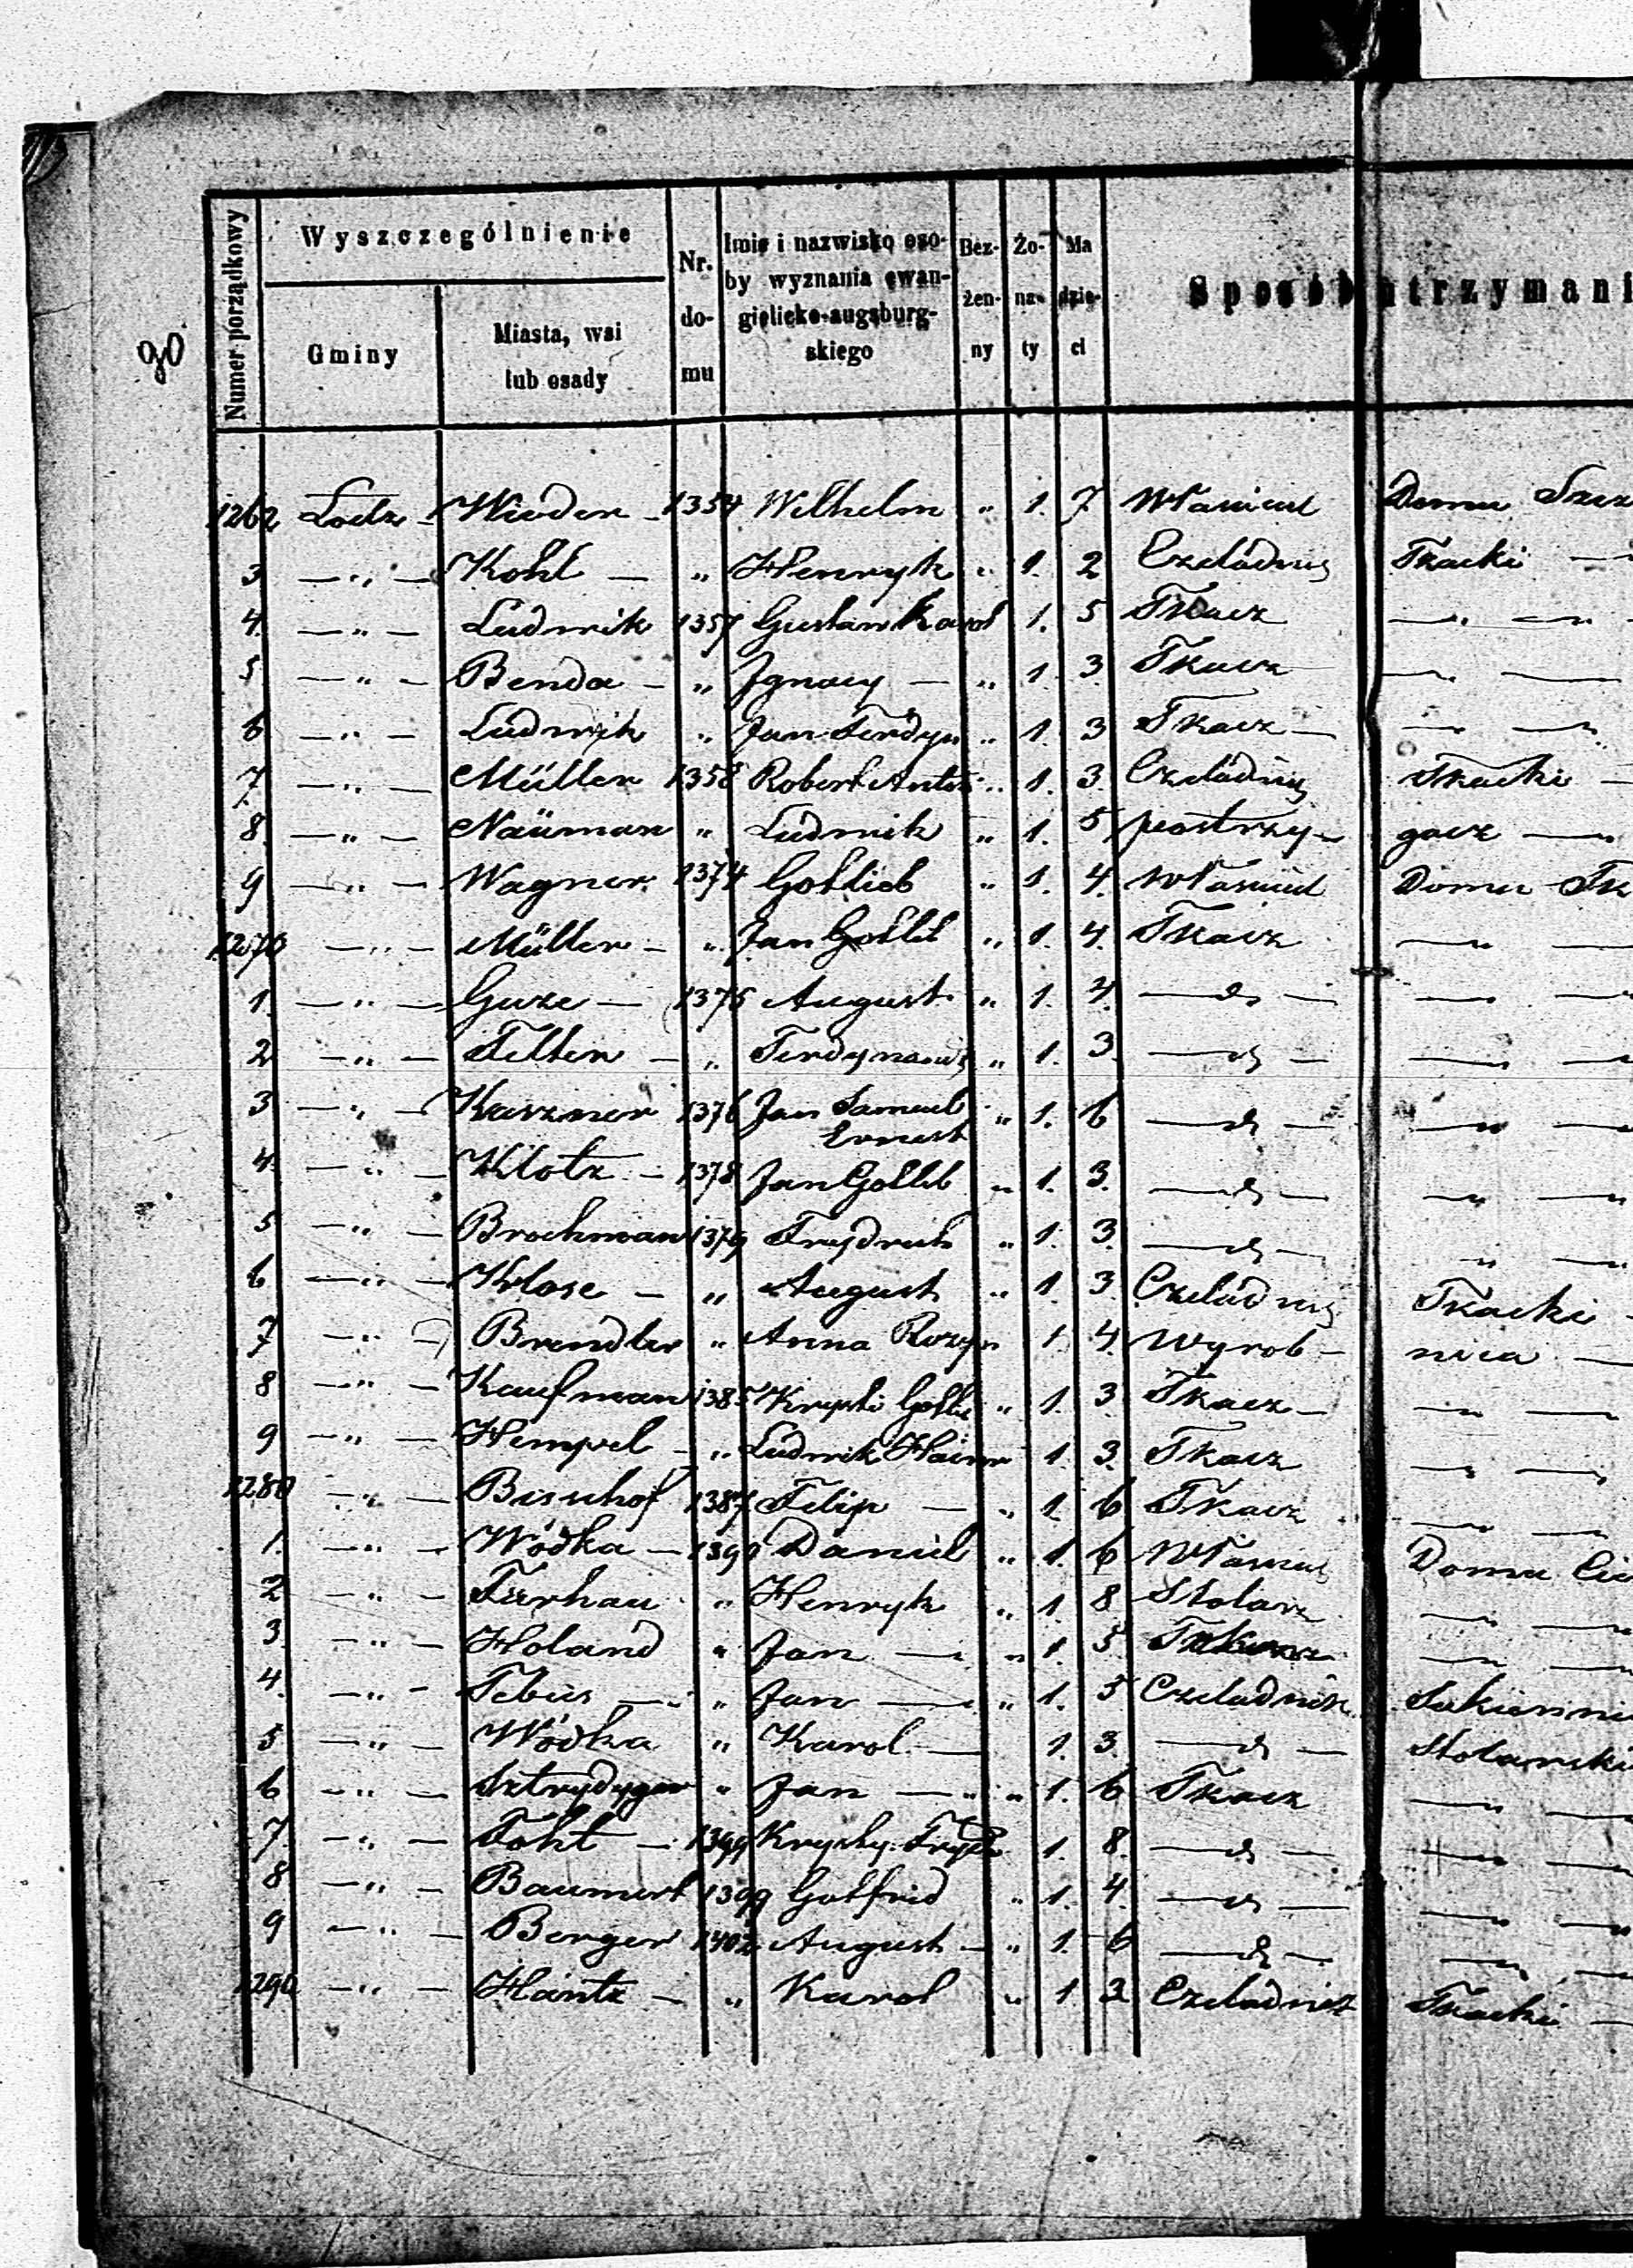 90
Numer porządkowy
Wyszczególnienie
Gminy
Miasta, wsi
lub osady
Nr.
do-
mu
Imię i nazwisko oso-
by wyznania ewan-
gielicko-augsburg-
skiego
Bez-
żen-
ny
Żo-
na-
ty
Ma
dzie-
ci
Sposób utrzymani
1262 Lodz - Wieder - 1354 Wilhelm " 1. 7 Właściciel Domu
3 - " - Kohl - " Henryk " 1. 2 Czeladnik Tkacki -
4. - " - Ludwik 1357 Gustaw Karol 1. 5 Tkacz - " -
5 - " - Benda - " Ignacy - " 1. 3. Tkacz - " -
6 - " - Ludwik " Jan Ferdyn " 1. 3 Tkacz - - " -
7. - " - Müller 1358 Robert Anton " 1. 3. Czeladnik Tkacki -
8. - " - Naüman " Ludwik " 1. 5 postrzy- gacz -
9 - " - Wagner 1374 Gotlieb " 1. 4. Właściciel Domu Tk
1270 - " - Müller - " Jan Gotlib " 1. 4. Tkacz - " -
1. - " - Guze - 1375 August " 1. 4. - d - - " -
2 - " - Felter - " Ferdynand " 1. 3. - d - - " -
3 - " - Karzner 1376 Jan Samuel " 1. 6 - d - - " -
Ernest
4. - " - Klotz - 1378 Jan Gotlib " 1. 3. - d - - " -
5 - " - Brochman 1379 Frydrich " 1. 3. - d - " "
6 - " - Klose - " August " 1. 3. Czeladnik Tkacki -
7 - " - Brendler " Anna Rozyn 1. 4. Wyrob- nica -
8 - " - Kaufman 1385 Krysti Gotlie " 1. 3 Tkacz - - " -
9 - " - Hempel - " Ludwik Hainr 1. 3. Tkacz - " -
1280 - " - Bischof 1387 Filip - " 1. 6 Tkacz - " -
1. - " - Wódka - 1390 Daniel " 1. 6 Właściciel Domu Cie
2 - " - Henryk " 1. 8 Stolarz - " -
3. - " - Holand " Jan - " 1. 5. - " -
4. - " - Tebus - " Jan - " 1. 5 Czeladnik Sukienni
5 - " - Wódka " Karol - 1. 3. - d - Stolarski
6 - " - Sztrydyger " Jan - " 1. 6 Tkacz - " -
7. - " - Foht - 1399 Krysty. Fryd 1. 8. - d - - " -
8 - " - Baumert 1399 Gotfrid " 1. 4. - d - - " -
9 - " - Berger 1402 August - " 1. 6 - d - - " -
1290 - " - Häntz - " Karol " 1. 3 Czeladnik Tkacki -